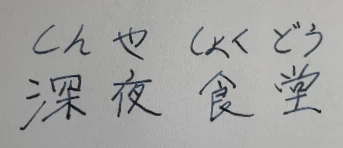 しんや しょくどう
深夜食堂